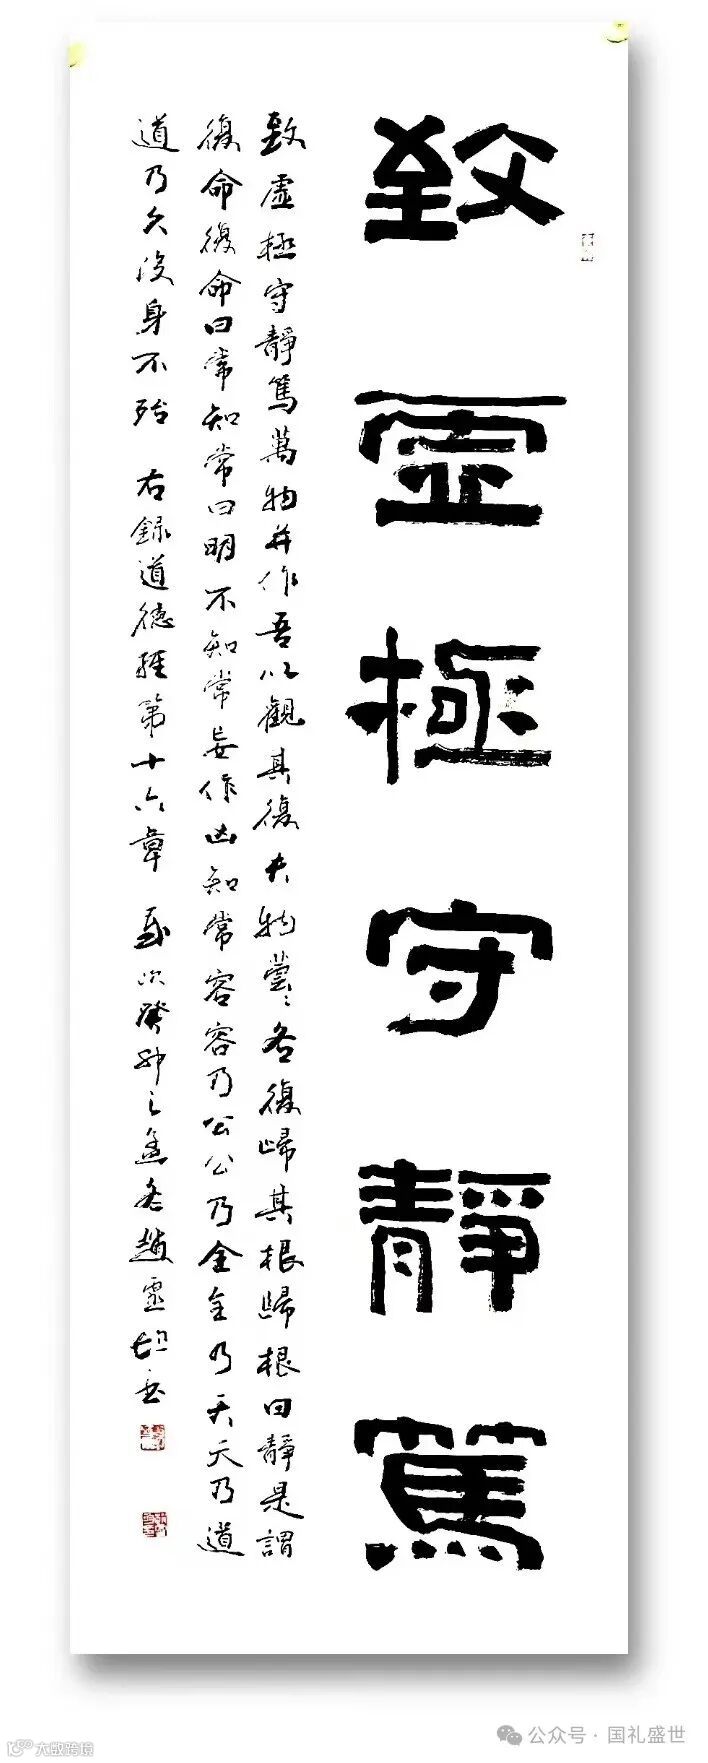 致虛極守靜篤
致虛極守靜篤萬物并作吾以觀其復夫物芸芸各復歸其根歸根曰靜是謂
復命復命曰常知常曰明不知常妄作凶知常容容乃公公乃全全乃天天乃道
道乃久沒身不殆 右錄道德經第十六章 歲次癸卯之孟冬趙
大数跨境
公众号 · 国礼盛世